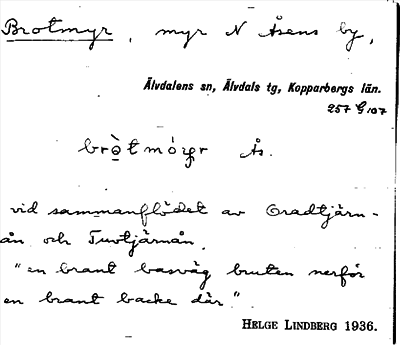 Brotmyr, myr N Åsens by,
Älvdalens sn, Älvdals tg, Kopparbergs län.
257 G 107
brò̤tmó̤yr Ås.
vid sammanflödet av Oradtjärn-
ån och Tuvtjärnån.
"en brant basväg bruten nerför
en brant backe där"
HELGE LINDBERG 1936.